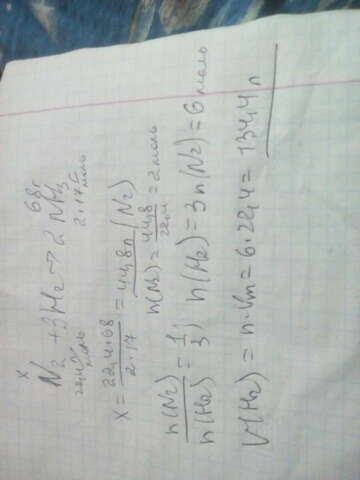 x 68г
N₂ + 3H₂ → 2NH₃
22,4 л/моль 2·17 г/моль
x = 22,4·68 / 2·17 = 44,8л (N₂)
n(N₂) = 44,8 / 22,4 = 2 моль
n(N₂) / n(H₂) = 1 / 3; n(H₂) = 3n(N₂) = 6 моль
V(H₂) = n·Vm = 6·22,4 = 134,4 л